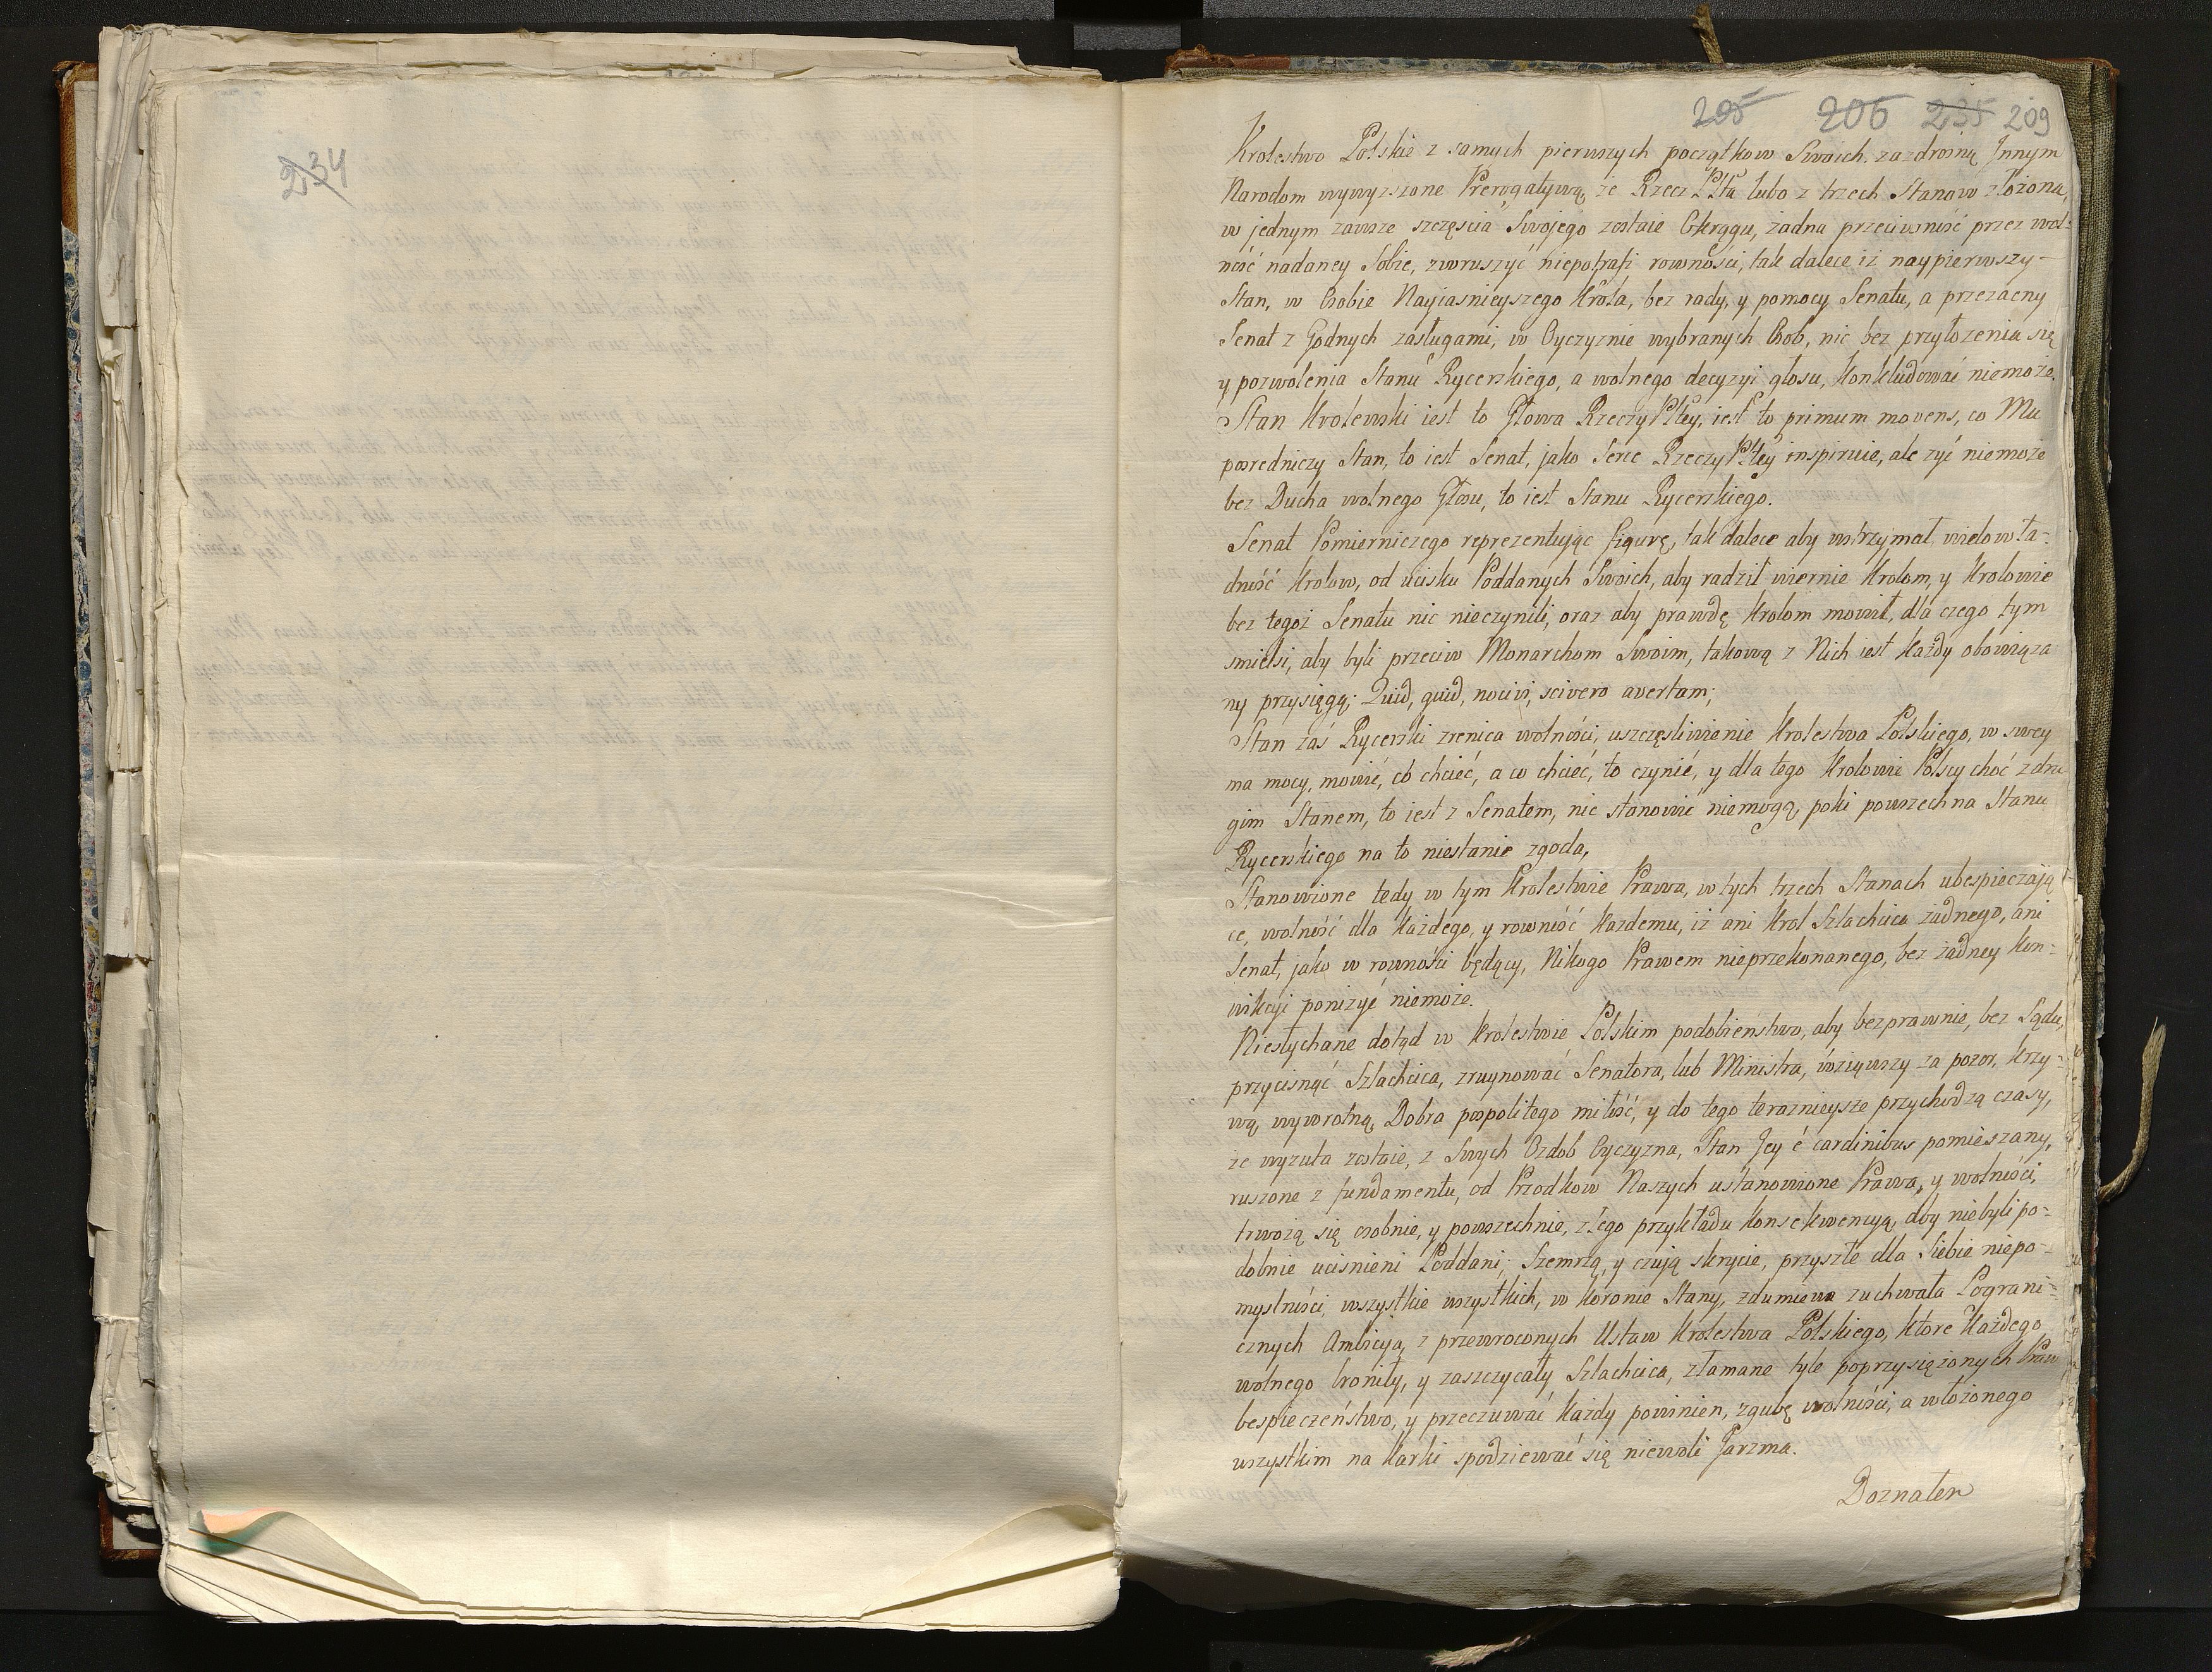 234
205 206 235 209
Krolestwo Polskie z samych pierwszych początkow Swoich, zazdrosną Innym
Narodom wywyzszone Prerogatywą, ze Rzecz Plta lubo z trzech Stanow złożona,
w jednym zawsze szczęscia Swojego zostaie Okręgu, żadna przeciwność przez wol-
ność nadaney Sobie, zwruszyć niepotrafi rowności, tak dalece iż naypierwszy-
Stan, w Osobie Nayiasnieyszego Krola, bez rady, y pomocy Senatu, a przezacny
Senat z Godnych zasługami, w Oyczyznie wybranych Osob, nic bez przyłozenia się
y pozwolenia Stanu Rycerskiego, a wolnego decyzyi głosu, konkludować niemoże.
Stan Krolewski iest to Głowa Rzeczy Pltey, iest to primum movens, co Mu
posredniczy Stan, to iest Senat, jako Serce Rzeczy Pltey inspiruie, ale zyć niemoże
bez Ducha wolnego Głosu, to iest Stanu Rycerskiego.
Senat Pomierniczego reprezentując figurę, tak dalece aby wstrzymał wielowła-
dność Krolow, od ucisku Poddanych Swoich, aby radził wiernie Krolom, y Krolowie
bez tegoż Senatu nic nieczynili, oraz aby prawdę Krolom mowił, dla czego tym
smielsi, aby byli przeciw Monarchom Swoim, takową z Nich iest każdy obowiąza
ny przysięgą: Quid, quid, nocivi, scivero avertam;
Stan zaś Rycerski zrenica wolności, uszczęsliwienie Krolestwa Polskiego, w swey
ma mocy, mowić, co chcieć, a co chcieć, to czynić, y dla tego Krolowie Polscy choć z dru
gim Stanem, to iest z Senatem, nic stanowić niemogą, poki powszechna Stanu
Rycerskiego na to niestanie zgoda,
Stanowione tedy w tym Krolestwie Prawa, w tych trzech Stanach ubespieczają
ce, wolność dla każdego, y rowność każdemu, iż ani Krol Szlachcica żadnego, ani
Senat, jako w rowności będący, Nikogo Prawem nieprzekonanego, bez żadney kon-
wikcyi poniżyć niemoże.
Niesłychane dotąd w Krolestwie Polskim podobieństwo, aby bezprawnie, bez Sądu,
przycisnąć Szlachcica, zruynować Senatora, lub Ministra, wziąwszy za pozor, krzy-
wą, wywrotną, Dobra pospolitego miłość, y do tego teraznieysze przychodzą czasy,
że wyzuta zostaie, z Swych Ozdob Oyczyzna, Stan Jey è cardinibus pomieszany,
ruszone z fundamentu, od Przodkow Naszych ustanowione Prawa, y wolności,
trwożą się osobnie, y powszechnie, złego przykładu konsekwencyą, aby niebyli po-
dobnie ucisnieni Poddani; Szemrzą, y czują skrycie, przyszłe dla Siebie niepo-
myslności, wszystkie wszystkich, w koronie Stany, zdumiewa zuchwała Pograni-
cznych Ambicya, z przewroconych Ustaw Krolestwa Polskiego, ktore każdego
wolnego broniły, y zaszczycały Szlachcica, złamane tyle poprzysiężonych Praw
bespieczeństwo, y przeczuwać każdy powinien, zgubę wolności, a włożonego
wszystkim na karki spodziewać się niewoli Jarzma.